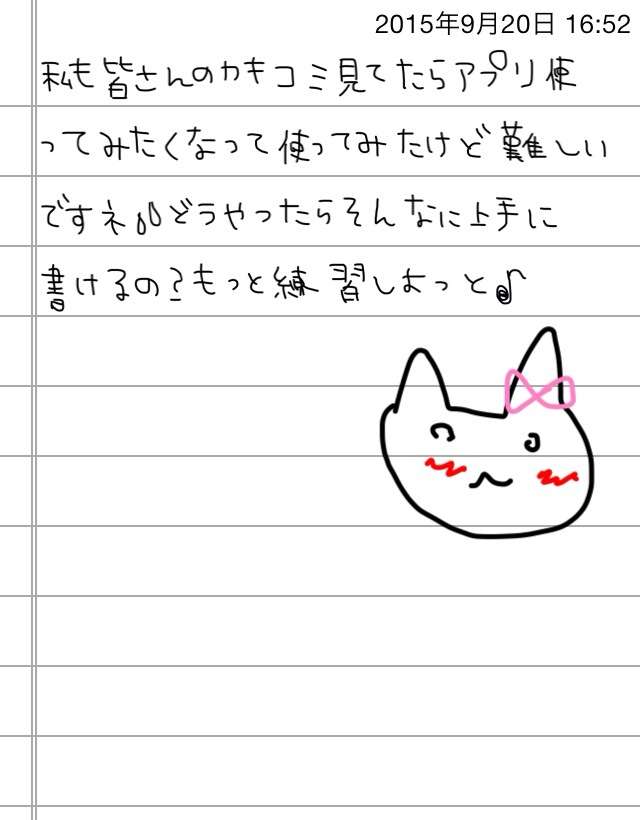 2015年9月20日 16:52
私も皆さんのカキコミ見てたらアプリ使
ってみたくなって使ってみたけど難しい
ですネ♪どうやったらそんなに上手に
書けるの?もっと練習しよっと♪